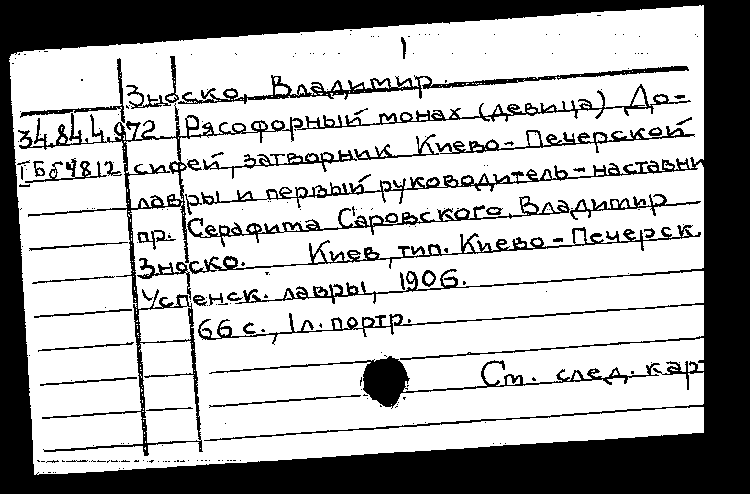 1
Зноско, Владимир.
34.84.4.972 Рясофорный монах (девица) До-
IБб 4812 сифей, затворник Киево-Печерской
лавры и первый руководитель-наставни
пр. Серафима Саровского. Владимир
Зноско. Киев, тип. Киево-Печерск.
Успенск. лавры, 1906.
66 с., 1 л. портр.
Ст. след. кар